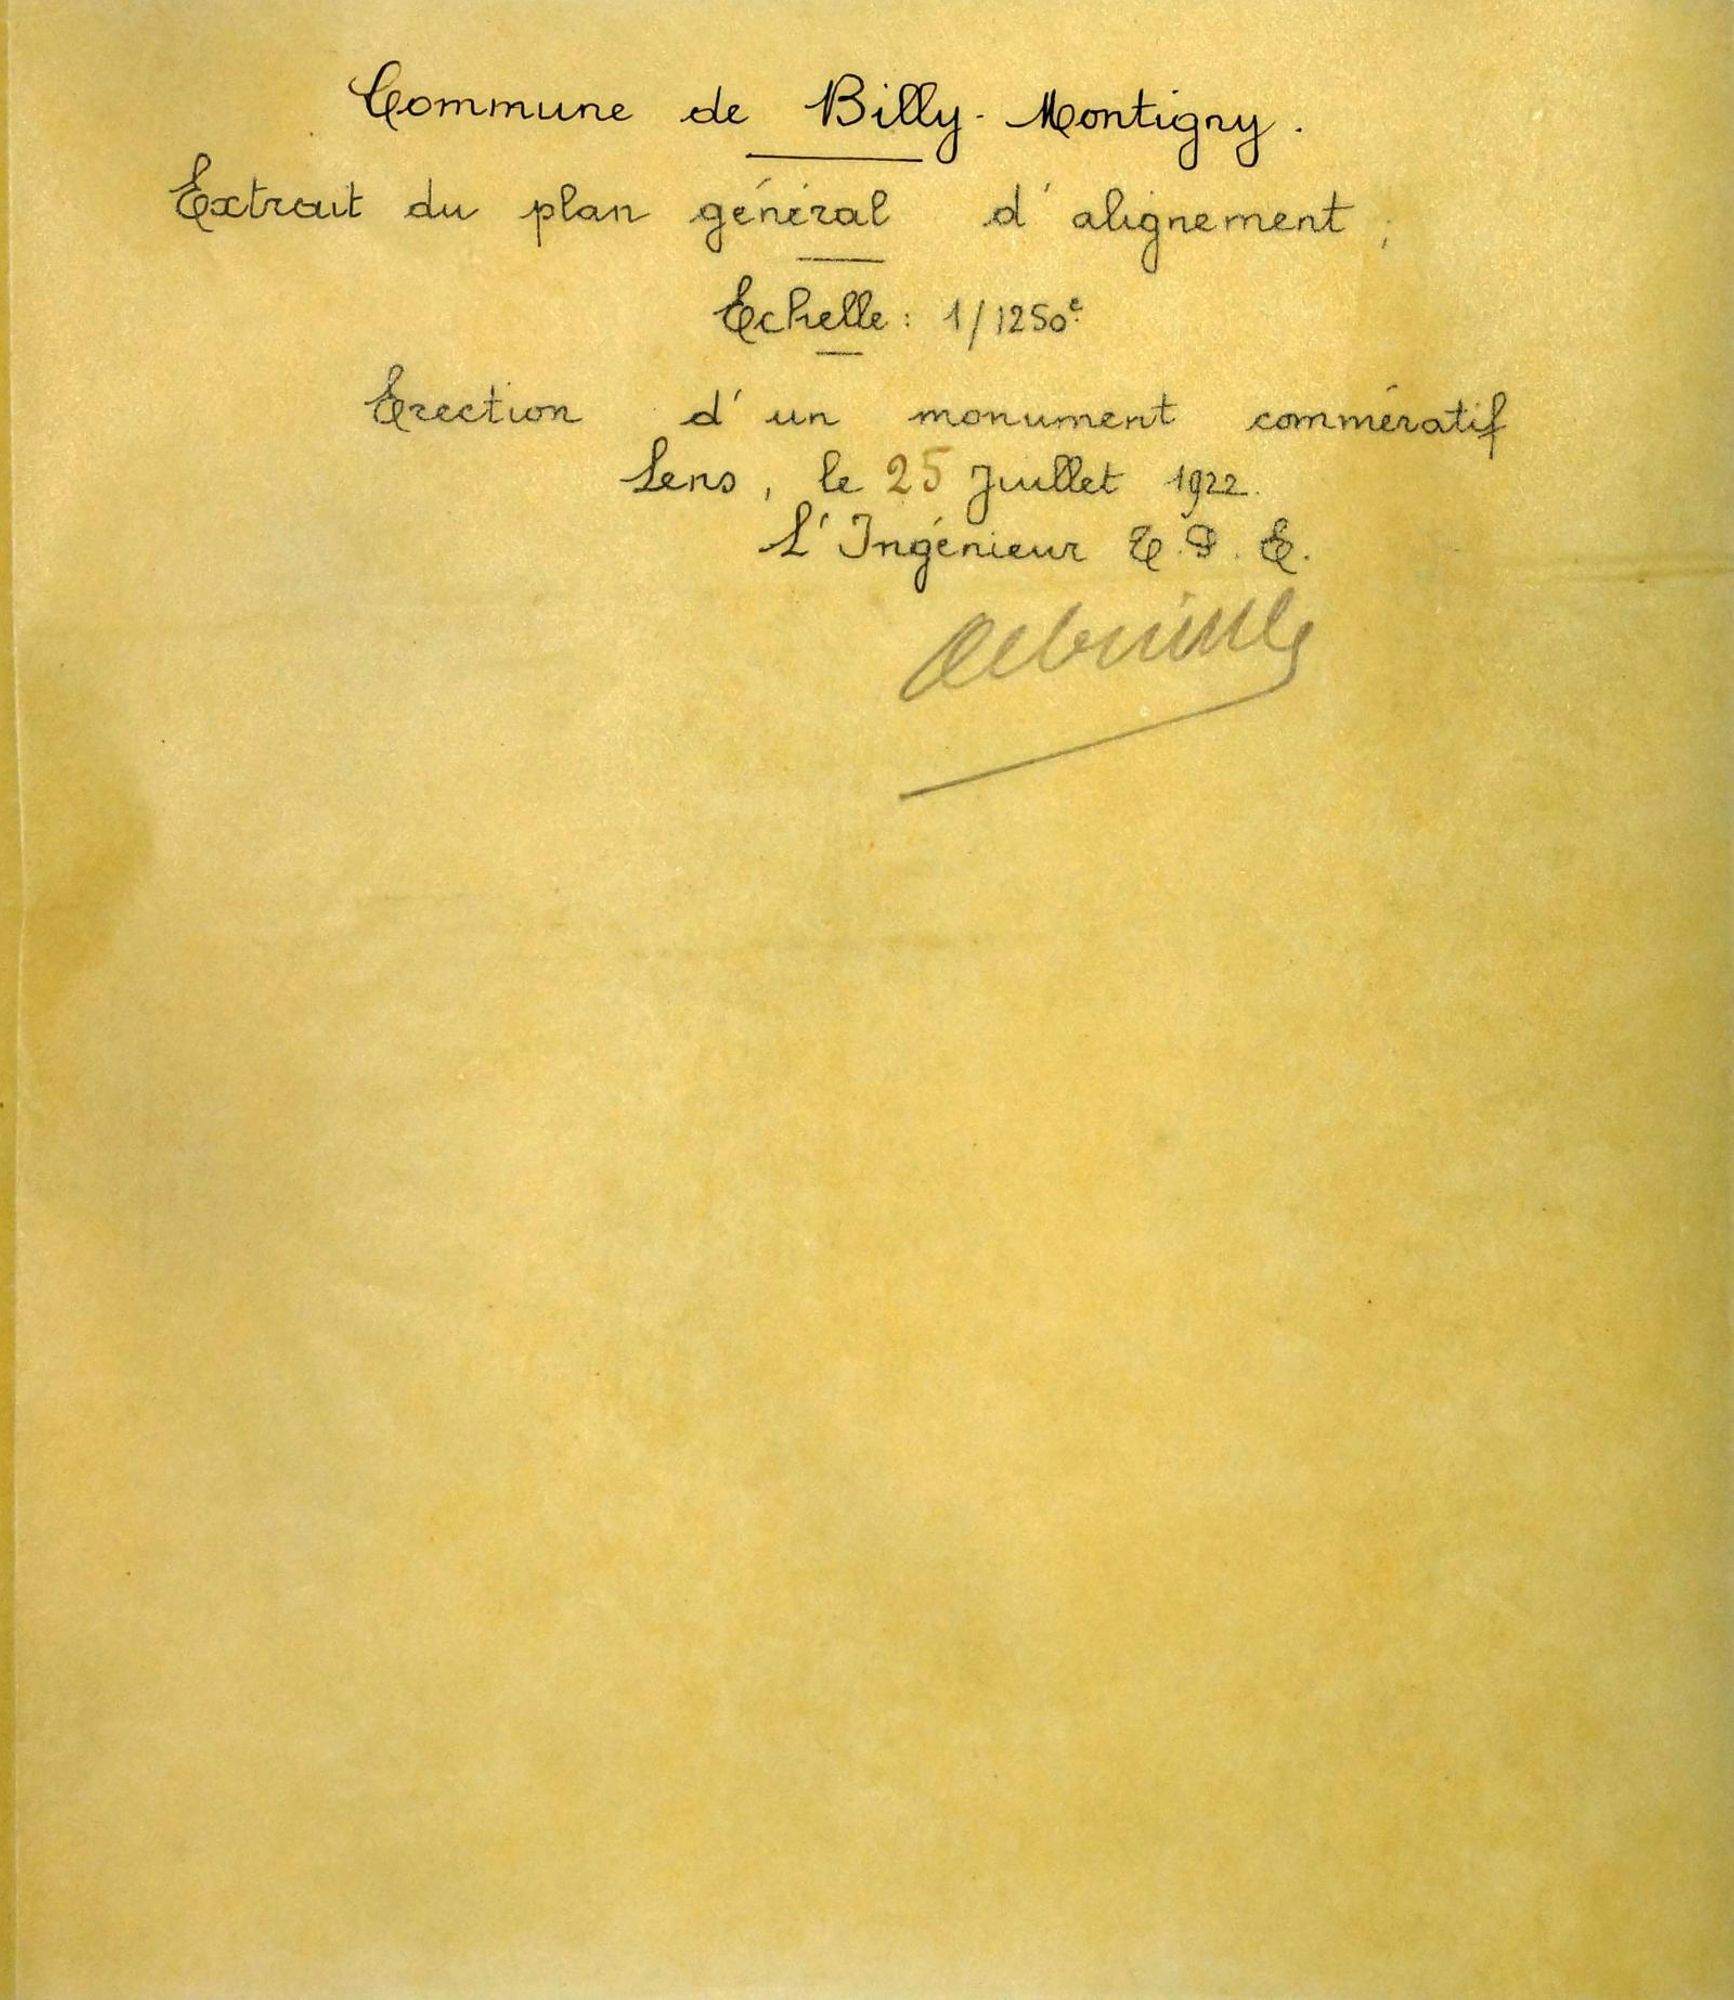 Commune de Billy-Montigny.
Extrait du plan général d'alignement;
Echelle: 1/1250e
Erection d'un monument commératif
Lens, le 25 Juillet 1922.
L'Ingénieur T.P.E.